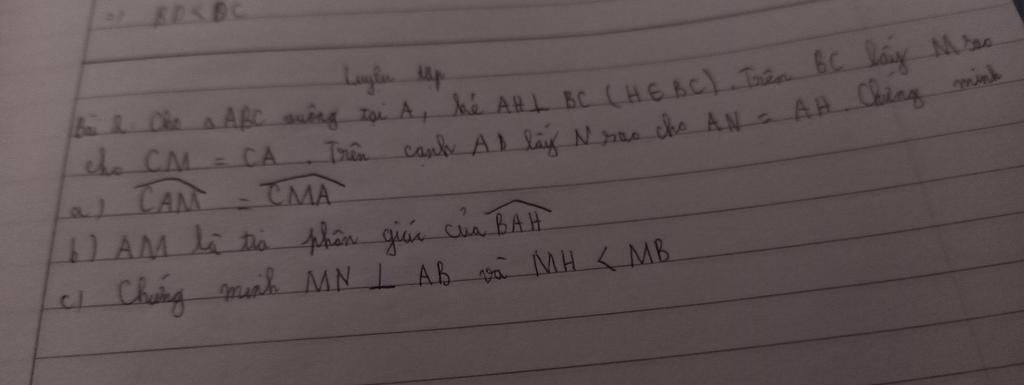 => BD < BC
Luyện tập
Bài 2. Cho △ABC vuông tại A, kẻ AH ⊥ BC (H ∈ BC). Trên BC lấy M sao
cho CM = CA. Trên cạnh AB lấy N sao cho AN = AH. Chứng minh
a) \widehat{CAM} = \widehat{CMA}
b) AM là tia phân giác của \widehat{BAH}
c) Chứng minh MN ⊥ AB và MH < MB